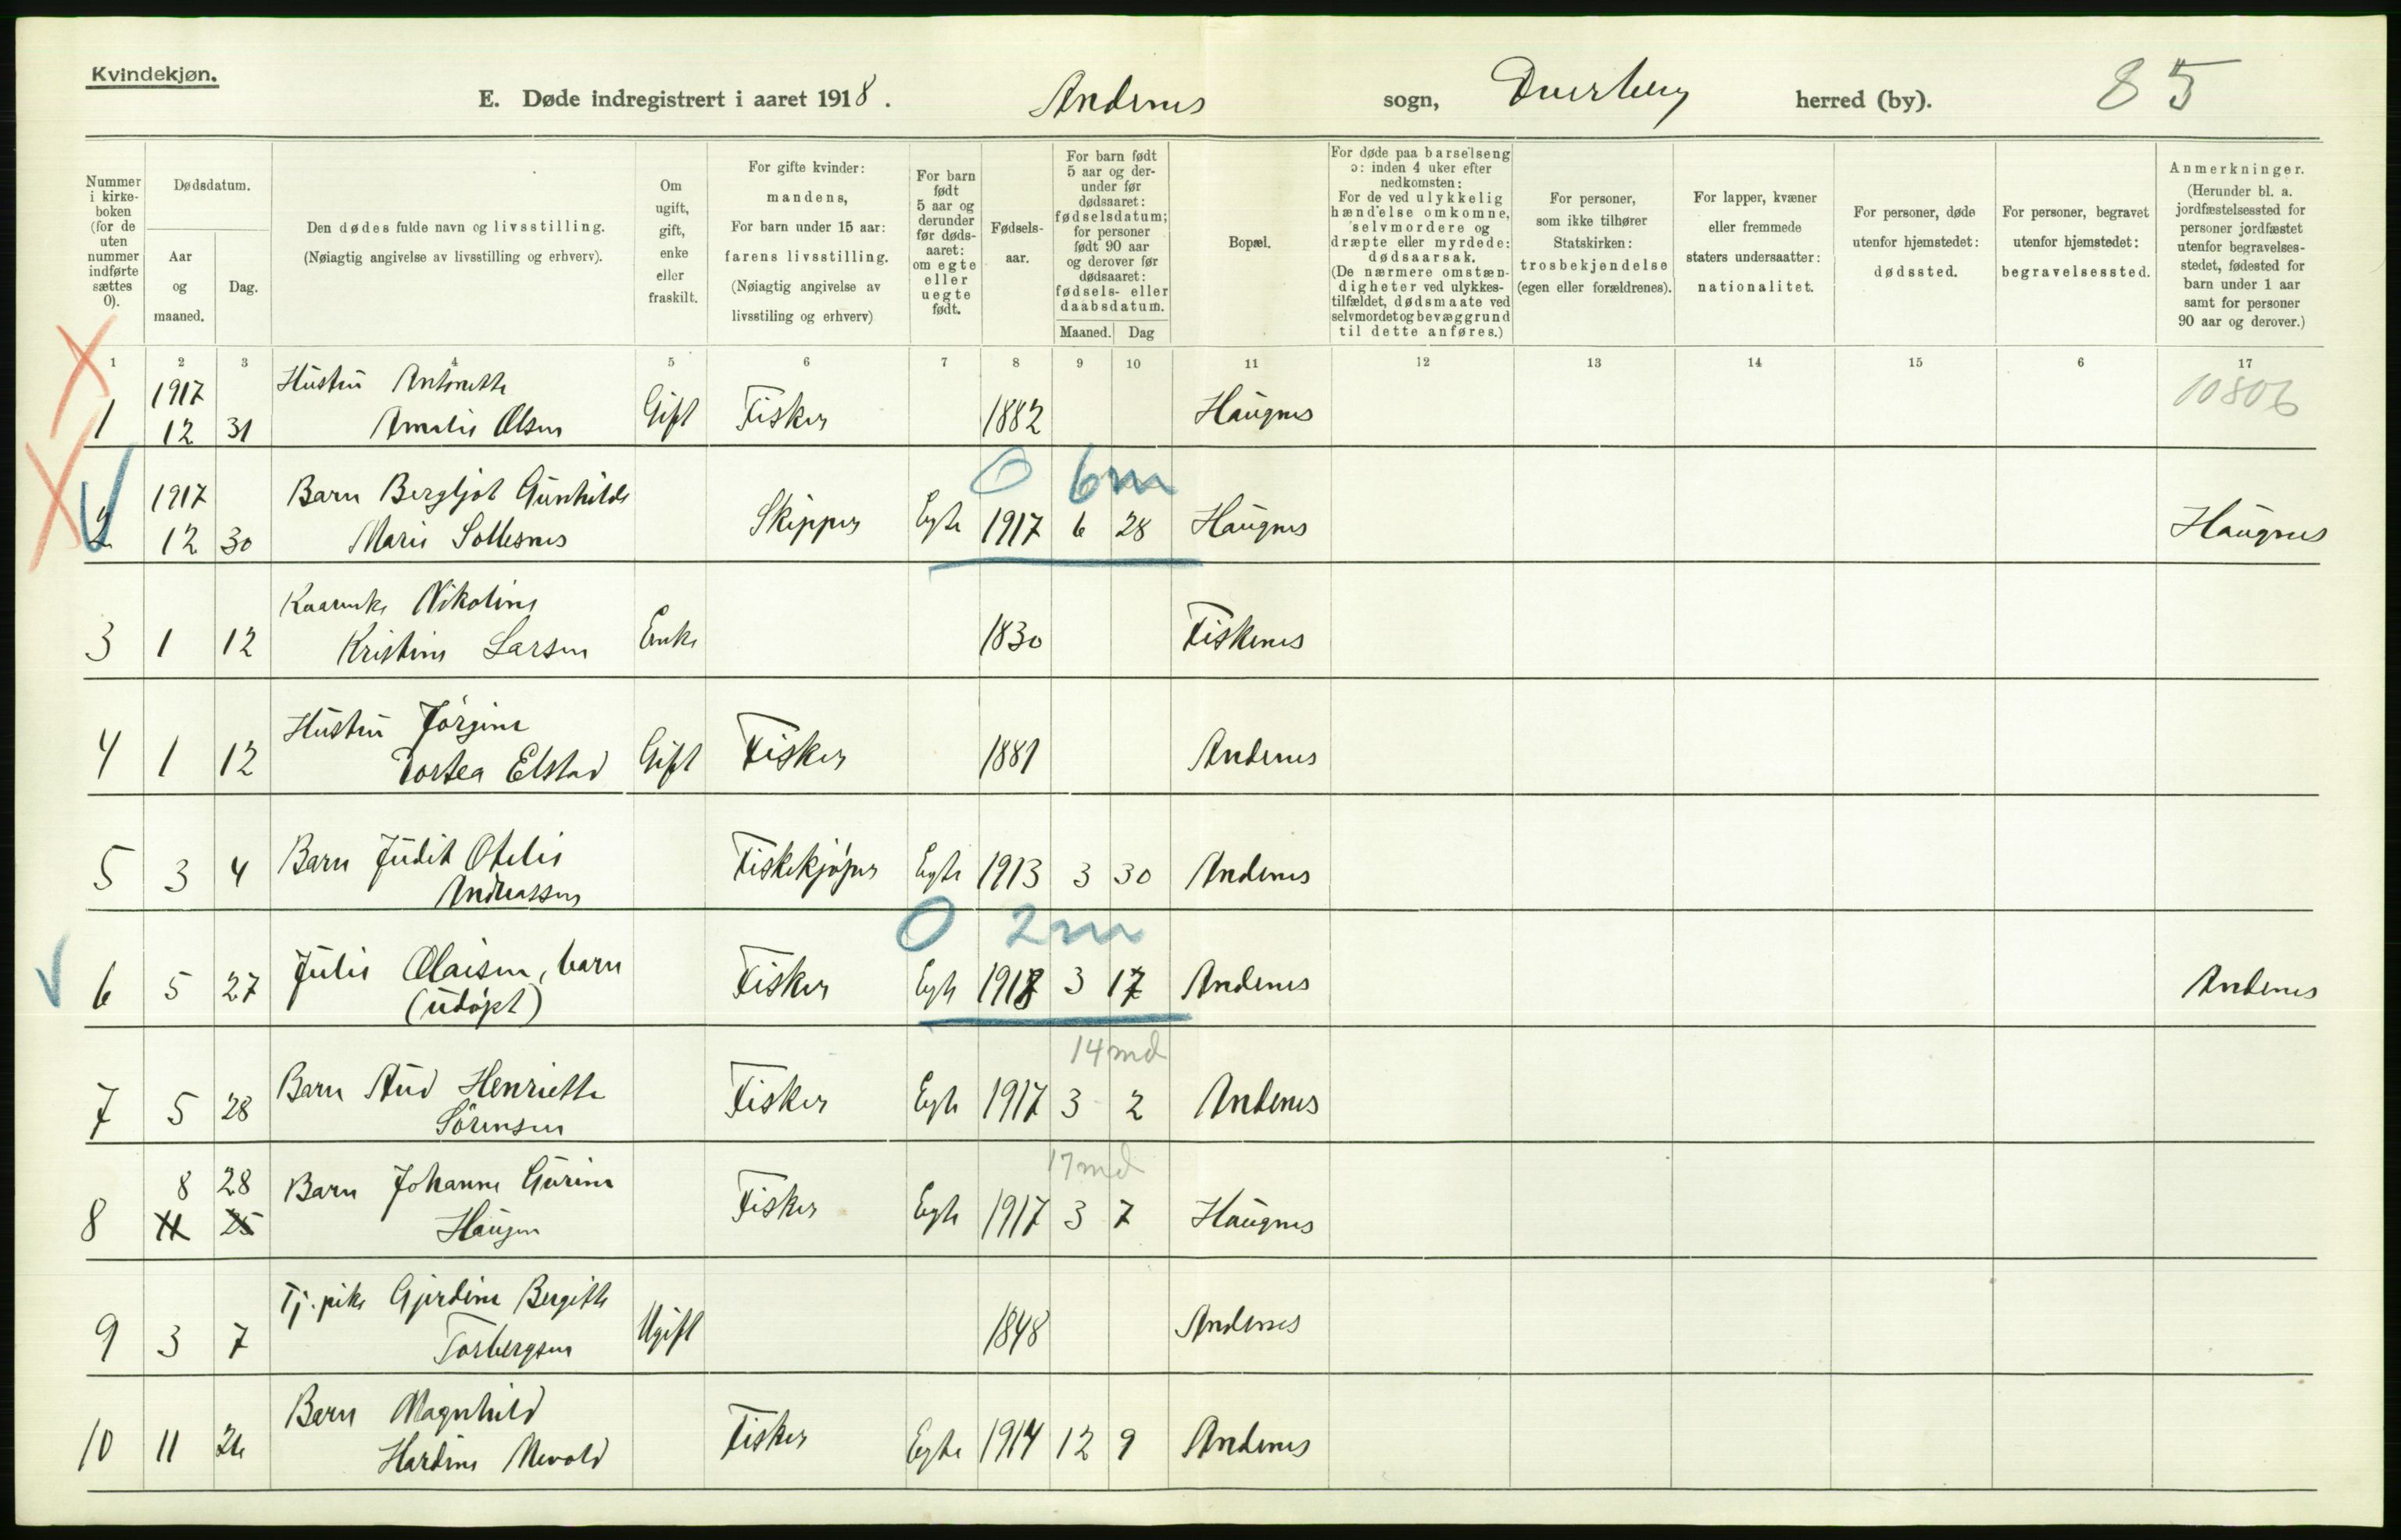 Kvindekjøn.
E. Døde indregistrert i aaret 1918. Andenes sogn, Dverberg herred (by). 85
Nummer i kirkeboken (for de uten nummer indførte sættes 0).
Dødsdatum.
Aar og maaned.
Dag.
Den dødes fulde navn og livsstilling.
(Nøiagtig angivelse av livsstilling og erhverv).
Om ugift, gift, enke eller fraskilt.
For gifte kvinder: mandens, For barn under 15 aar: farens livsstilling. (Nøiagtig angivelse av livsstiling og erhverv)
For barn født 5 aar og derunder før dødsaaret: om egte eller uegte født.
Fødselsaar.
For barn født 5 aar og derunder før dødsaaret: fødselsdatum; for personer født 90 aar og derover før dødsaaret: fødsels- eller daabsdatum.
Maaned. Dag
Bopæl.
For døde paa barselseng ɔ: inden 4 uker efter nedkomsten: For de ved ulykkelig hændelse omkomne, selvmordere og dræpte eller myrdede: dødsaarsak. (De nærmere omstændigheter ved ulykkestilfældet, dødsmaate ved selvmordet og bevæggrund til dette anføres.)
For personer, som ikke tilhører Statskirken: trosbekjendelse (egen eller forældrenes).
For lapper, kvæner eller fremmede staters undersaatter: nationalitet.
For personer, døde utenfor hjemstedet: dødssted.
For personer, begravet utenfor hjemstedet: begravelsessted.
Anmerkninger. (Herunder bl. a. jordfæstelsessted for personer jordfæstet utenfor begravelsesstedet, fødested for barn under 1 aar samt for personer 90 aar og derover.)
1 2 3 4 5 6 7 8 9 10 11 12 13 14 15 6 17
1917 Hustru Antonette 10806
1 12 31 Amalie Olsen Gift Fisker 1882 Haugnes
0 6m
1917 Barn Bergljot Gunhilde
2 12 30 Marie Sollesnes Skipper Egte 1917 6 28 Haugnes Haugnes
Kaarenke Nikoline
3 1 12 Kristine Larsen Enke 1830 Fiskenes
Hustru Jørgine
4 1 12 Dortea Elstad Gift Fisker 1881 Andenes
Barn Judit Otelie
5 3 4 Andreassen Fiskekjøper Egte 1913 3 30 Andenes
0 2m
Julie Olaisen, barn
6 5 27 (udøpt) Fisker Egte 1918 3 17 Andenes Andenes
14 md
Barn Aud Henriette
7 5 28 Sørensen Fisker Egte 1917 3 2 Andenes
17 md
8 28 Barn Johanne Gurine
8 11 25 Haugen Fisker Egte 1917 3 7 Haugnes
Tj.pike Gjerdine Bergitte
9 3 7 Torbergsen Ugift 1848 Andenes
Barn Magnhild
10 11 26 Hardine Mevold Fisker Egte 1914 12 9 Andenes